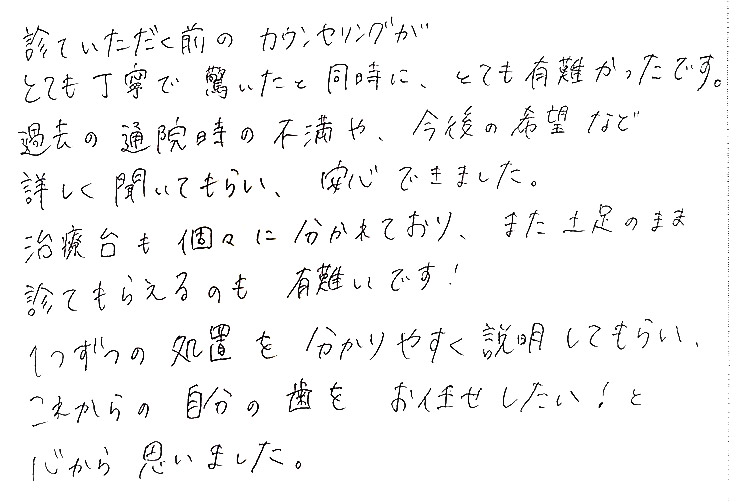 診ていただく前の カウンセリングが
とても丁寧で 驚いたと 同時に、とても有難かったです。
過去の 通院時の 不満や、今後の 希望 など
詳しく 聞いてもらい、安心 できました。
治療台も 個々に 分かれており、また 土足のまま
診てもらえるのも 有難いです!
1つずつの 処置を 分かりやすく 説明してもらい、
これからの 自分の 歯を お任せしたい!と
心から 思いました。